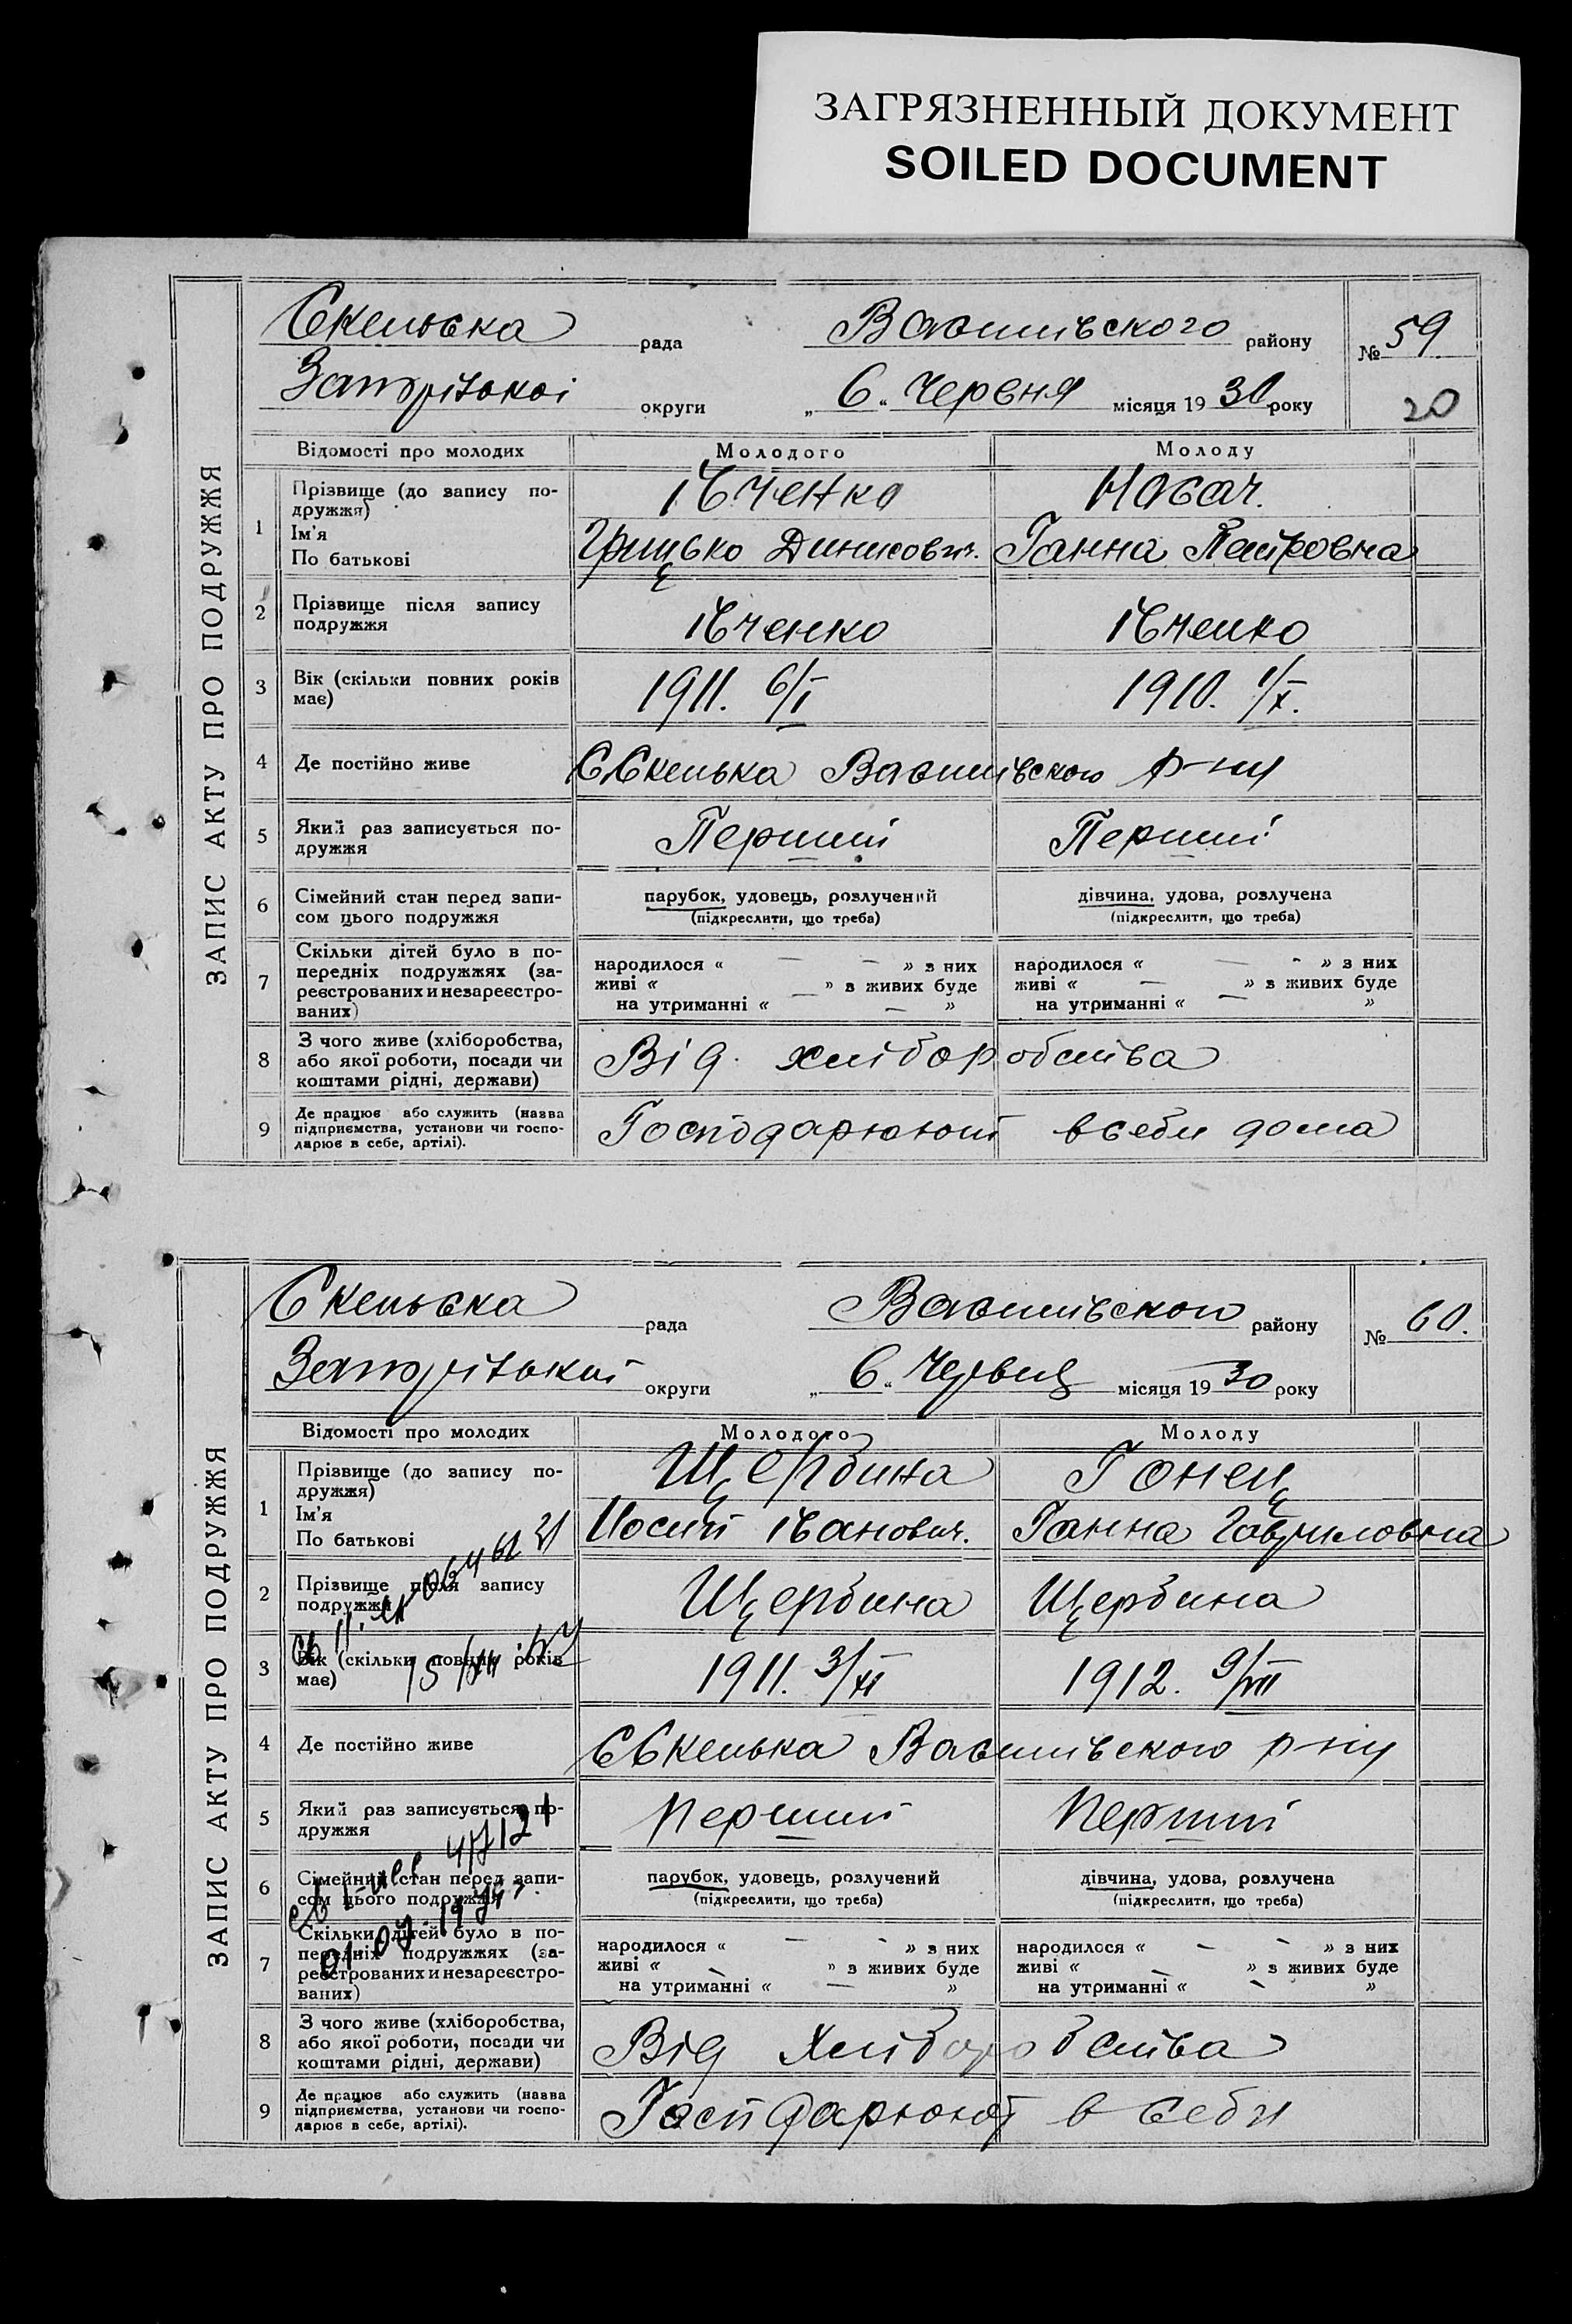 ЗАГРЯЗНЕННЫЙ ДОКУМЕНТ
SOILED DOCUMENT
ЗАПИС АКТУ ПРО ПОДРУЖЖЯ
Скельська рада Василівського району № 59
округи „ 6 “ Червня місяця 19 30 року 20
Відомості про молодих Молодого Молоду
1 Прізвище (до запису по-
дружжя) Івченко Носач.
Ім'я
По батькові Грицько Денисович. Ганна Петровна
2 Прізвище після запису
подружжя Івченко Івченко
3 Вік (скільки повних років
має) 1911. 6/I 1910. 1/X.
4 Де постійно живе С Скелька Василівського р-ну
5 Який раз записується по-
дружжя Перший Перший
6 Сімейний стан перед запи-
сом цього подружжя парубок, удовець, розлучений дівчина, удова, розлучена
(підкреслити, що треба) (підкреслити, що треба)
7 Скільки дітей було в по-
передніх подружжях (за-
реєстрованих и незареєстро-
ваних)
народилося « — — » з них народилося « — - » з них
живі « — » з живих буде живі « — » з живих буде
на утриманні « — » на утриманні « — »
8 З чого живе (хліборобства,
або якої роботи, посади чи
коштами рідні, держави) Від хліборобства
9 Де працює або служить (назва
підприємства, установи чи госпо-
дарює в себе, артілі). Господарюют в себи дома
ЗАПИС АКТУ ПРО ПОДРУЖЖЯ
Скельська рада Василівського району № 60.
округи „ 6 “ місяця 19 30 року
Відомості про молодих Молодого Молоду
1 Прізвище (до запису по-
дружжя) Щербина Гонец
Ім'я
По батькові Иосип Іванович. Ганна Гавриловна
2 Прізвище після запису
подружжя Щербина Щербина
3 Вік (скільки повних років
має) 1911. 3/XI 1912. 9/VII
4 Де постійно живе С Скелька Василівського р-ну
5 Який раз записується по-
дружжя Перший Перший
6 Сімейний стан перед запи-
сом цього подружжя парубок, удовець, розлучений дівчина, удова, розлучена
(підкреслити, що треба) (підкреслити, що треба)
7 Скільки дітей було в по-
передніх подружжях (за-
реєстрованих и незареєстро-
ваних)
народилося « — - » з них народилося « — - » з них
живі « - » з живих буде живі « - » з живих буде
на утриманні « — » на утриманні « - »
8 З чого живе (хліборобства,
або якої роботи, посади чи
коштами рідні, держави) Від Хліборобства
9 Де працює або служить (назва
підприємства, установи чи госпо-
дарює в себе, артілі). Господарюют в себи